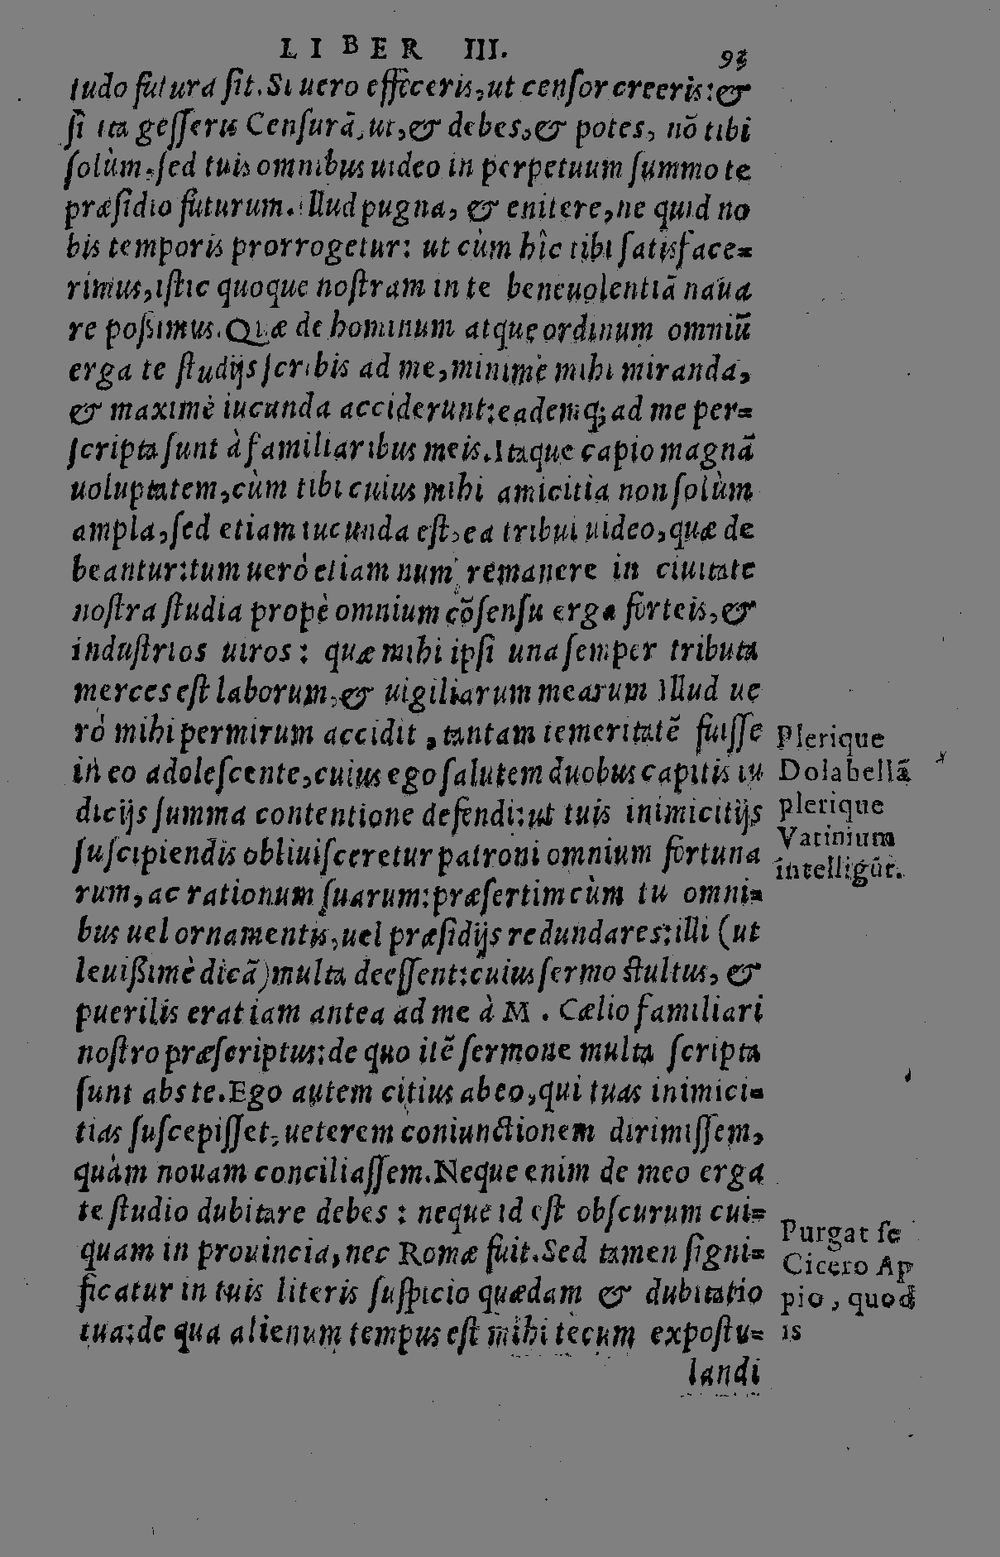 LIBER III. 93
tudo futura sit. Si uero effeceris, ut censor creeris: &
si ita gesseris Censurã, ut, & debes, & potes, nõ tibi
solùm, sed tuis omnibus uideo in perpetuum summo te
præsidio futurum. Illud pugna, & enitere, ne quid no
bis temporis prorrogetur: ut cùm hîc tibi satisface=
rimus, istic quoque nostram in te beneuolentiã naua
re possimus. Quæ de hominum atque ordinum omniũ
erga te studijs scribis ad me, minimè mihi miranda,
& maximè iucunda acciderunt: eademq; ad me per=
scripta sunt à familiaribus meis. Itaque capio magnã
uoluptatem, cùm tibi cuius mihi amicitia non solùm
ampla, sed etiam iucunda est, ea tribui uideo, quæ de
beantur: tum uerò etiam num remanere in ciuitate
nostra studia propè omnium cõsensu erga forteis, &
industrios uiros: quæ mihi ipsi una semper tributa
merces est laborum, & uigiliarum mearum Illud ue
rò mihi permirum accidit, tantam temeritatẽ fuisse
in eo adolescente, cuius ego salutem duobus capitis iu
dicijs summa contentione defendi: ut tuis inimicitijs
suscipiendis obliuisceretur patroni omnium fortuna
rum, ac rationum suarum: præsertim cùm tu omni=
bus uel ornamentis, uel præsidijs redundares: illi (ut
leuissimè dicã) multa deessent: cuius sermo stultus, &
puerilis erat iam antea ad me à M. Cælio familiari
nostro præscriptus: de quo itẽ sermone multa scripta
sunt abs te. Ego autem citius abeo, qui tuas inimici=
tias suscepisset, ueterem coniunctionem dirimissem,
quàm nouam conciliassem. Neque enim de meo erga
te studio dubitare debes: neque id est obscurum cui=
quam in prouincia, nec Romæ fuit. Sed tamen signi=
ficatur in tuis literis suspicio quædam & dubitatio
tua: de qua alienum tempus est mihi tecum expostu=
landi
Plerique
Dolabellã
plerique
Vatinium
intelligũt.
Purgat se
Cicero Ap
pio, quod
is